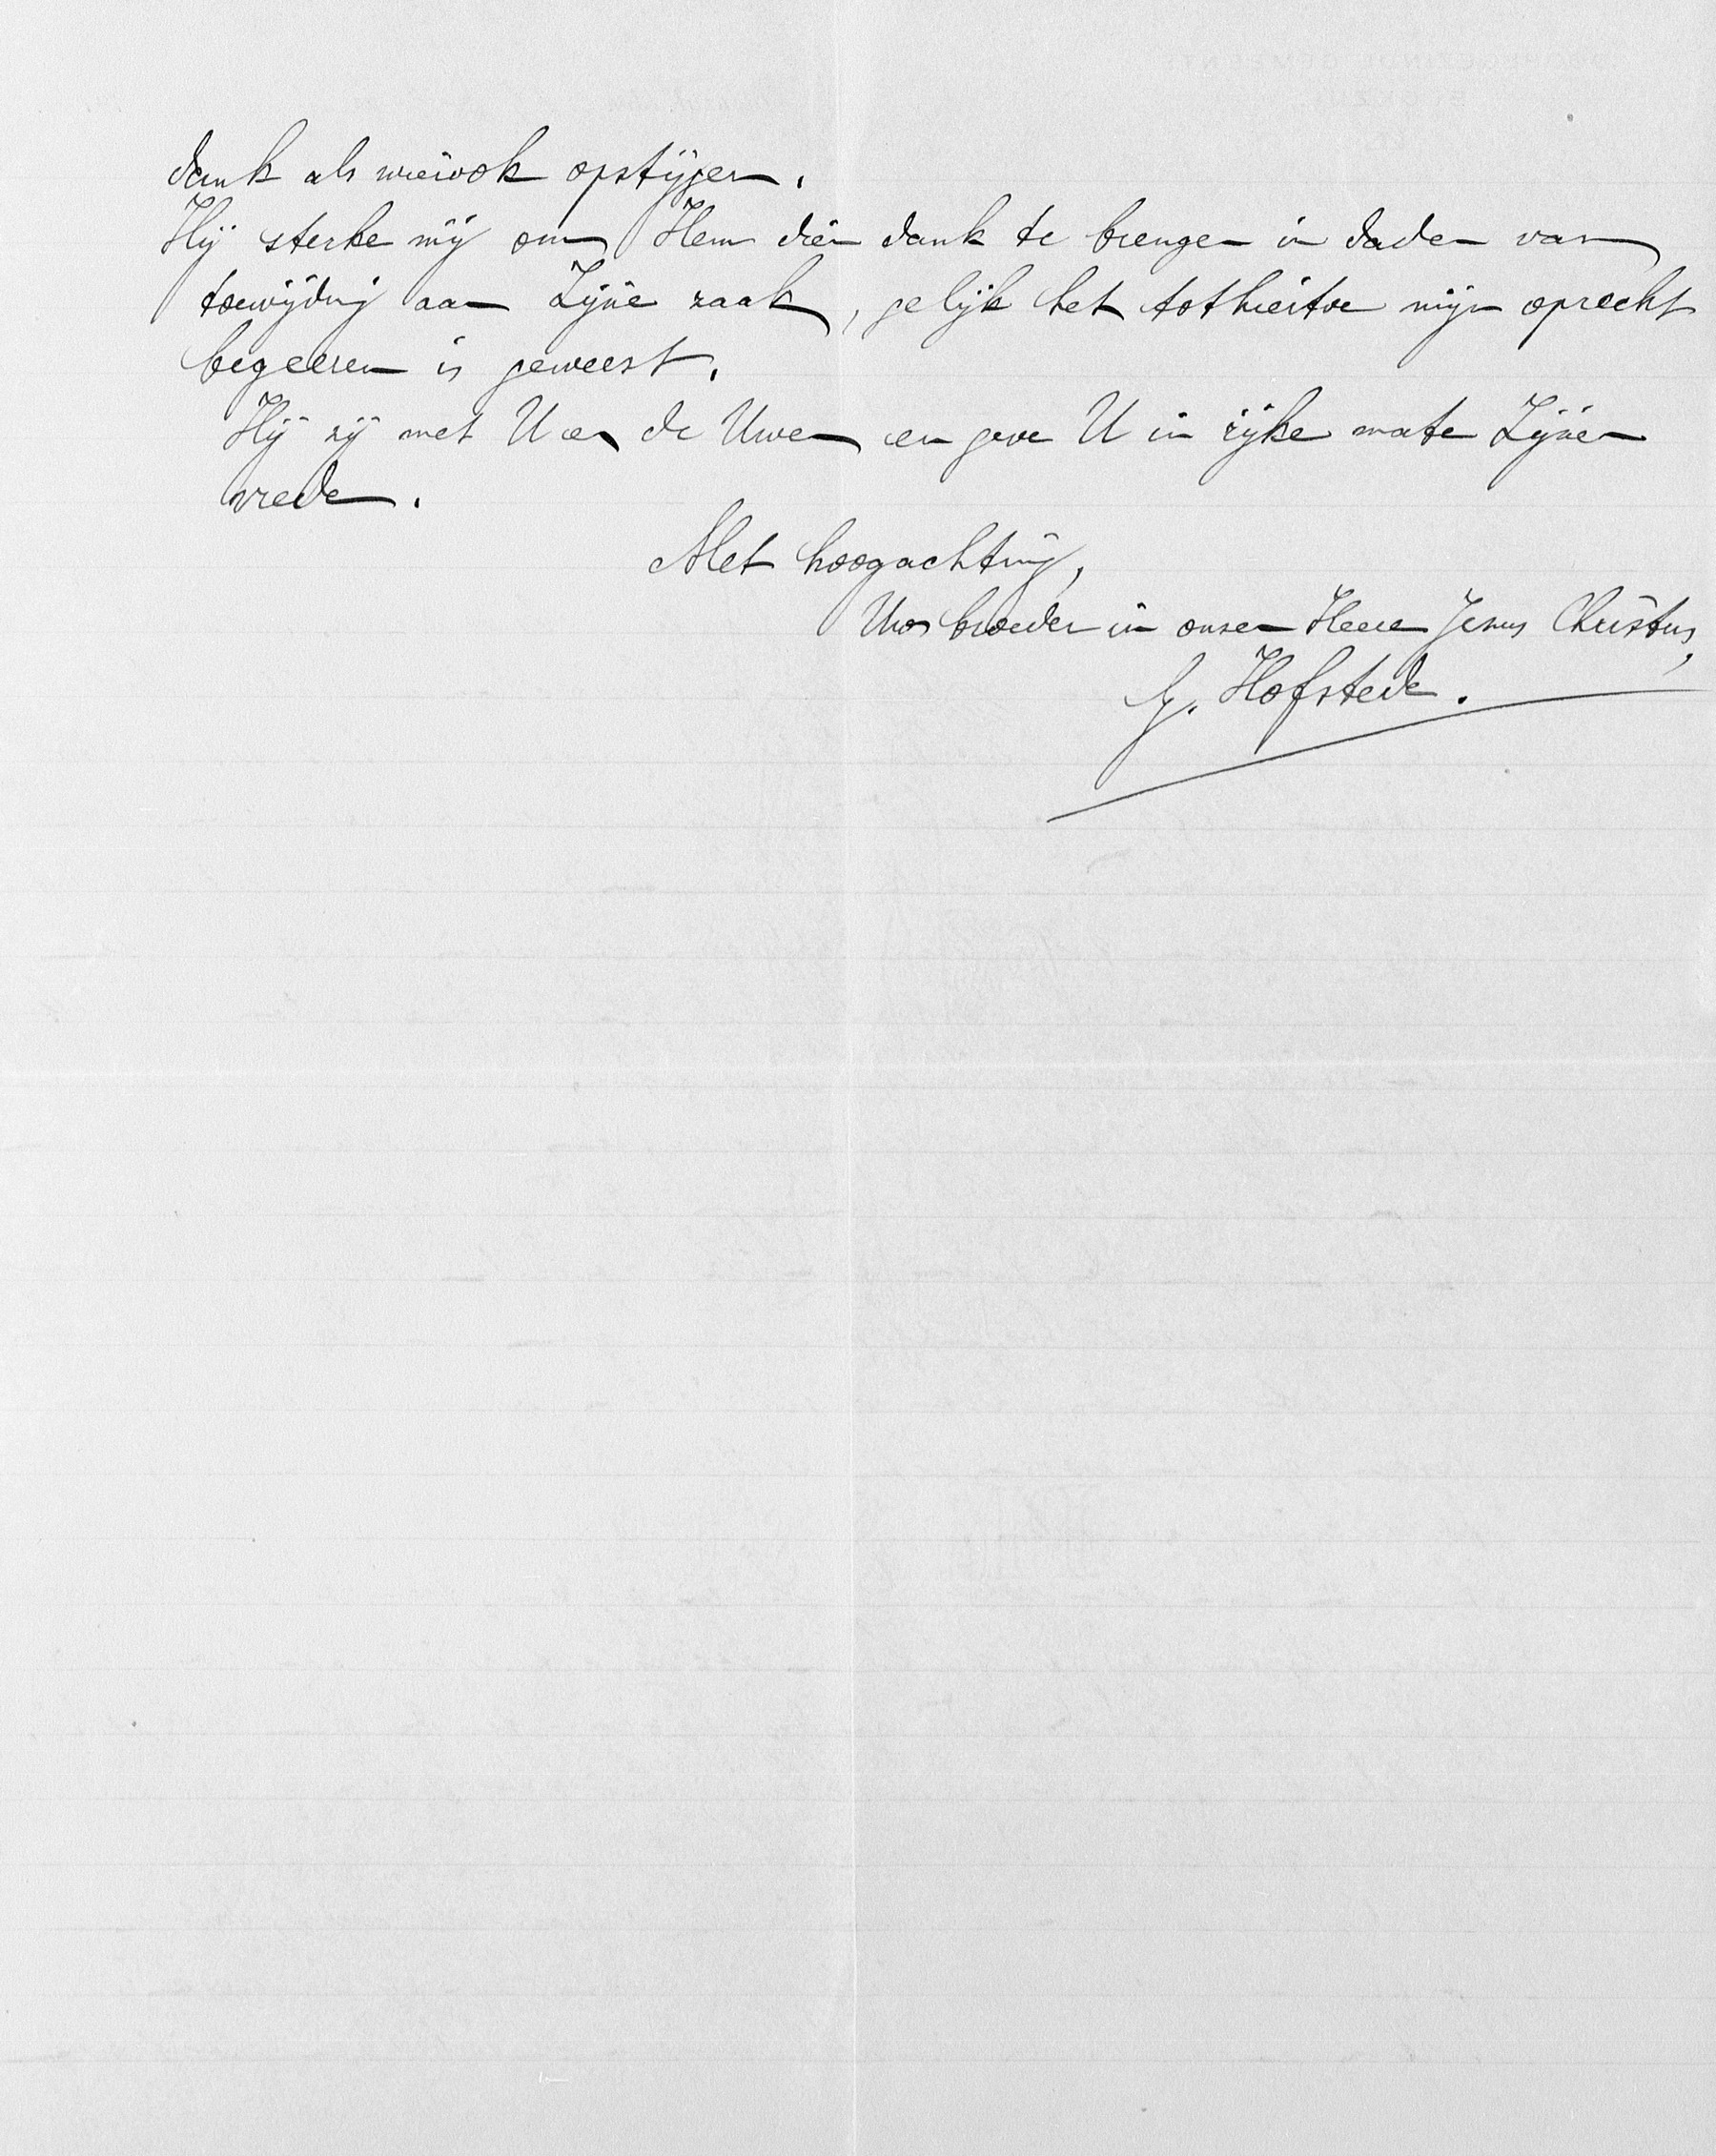 dank als wierook opstijgen.
Hij sterke mij om Hem dien dank te brengen in daden van
toewijding aan Zijne zaak, gelijk het tothiertoe mijn oprecht
begeeren is geweest.
Hij zij met U en de Uwen en geve U in rijke mate Zijnen
vrede.
Met hoogachting,
Uw broeder in onzen Heere Jezus Christus,
G. Hofstede.